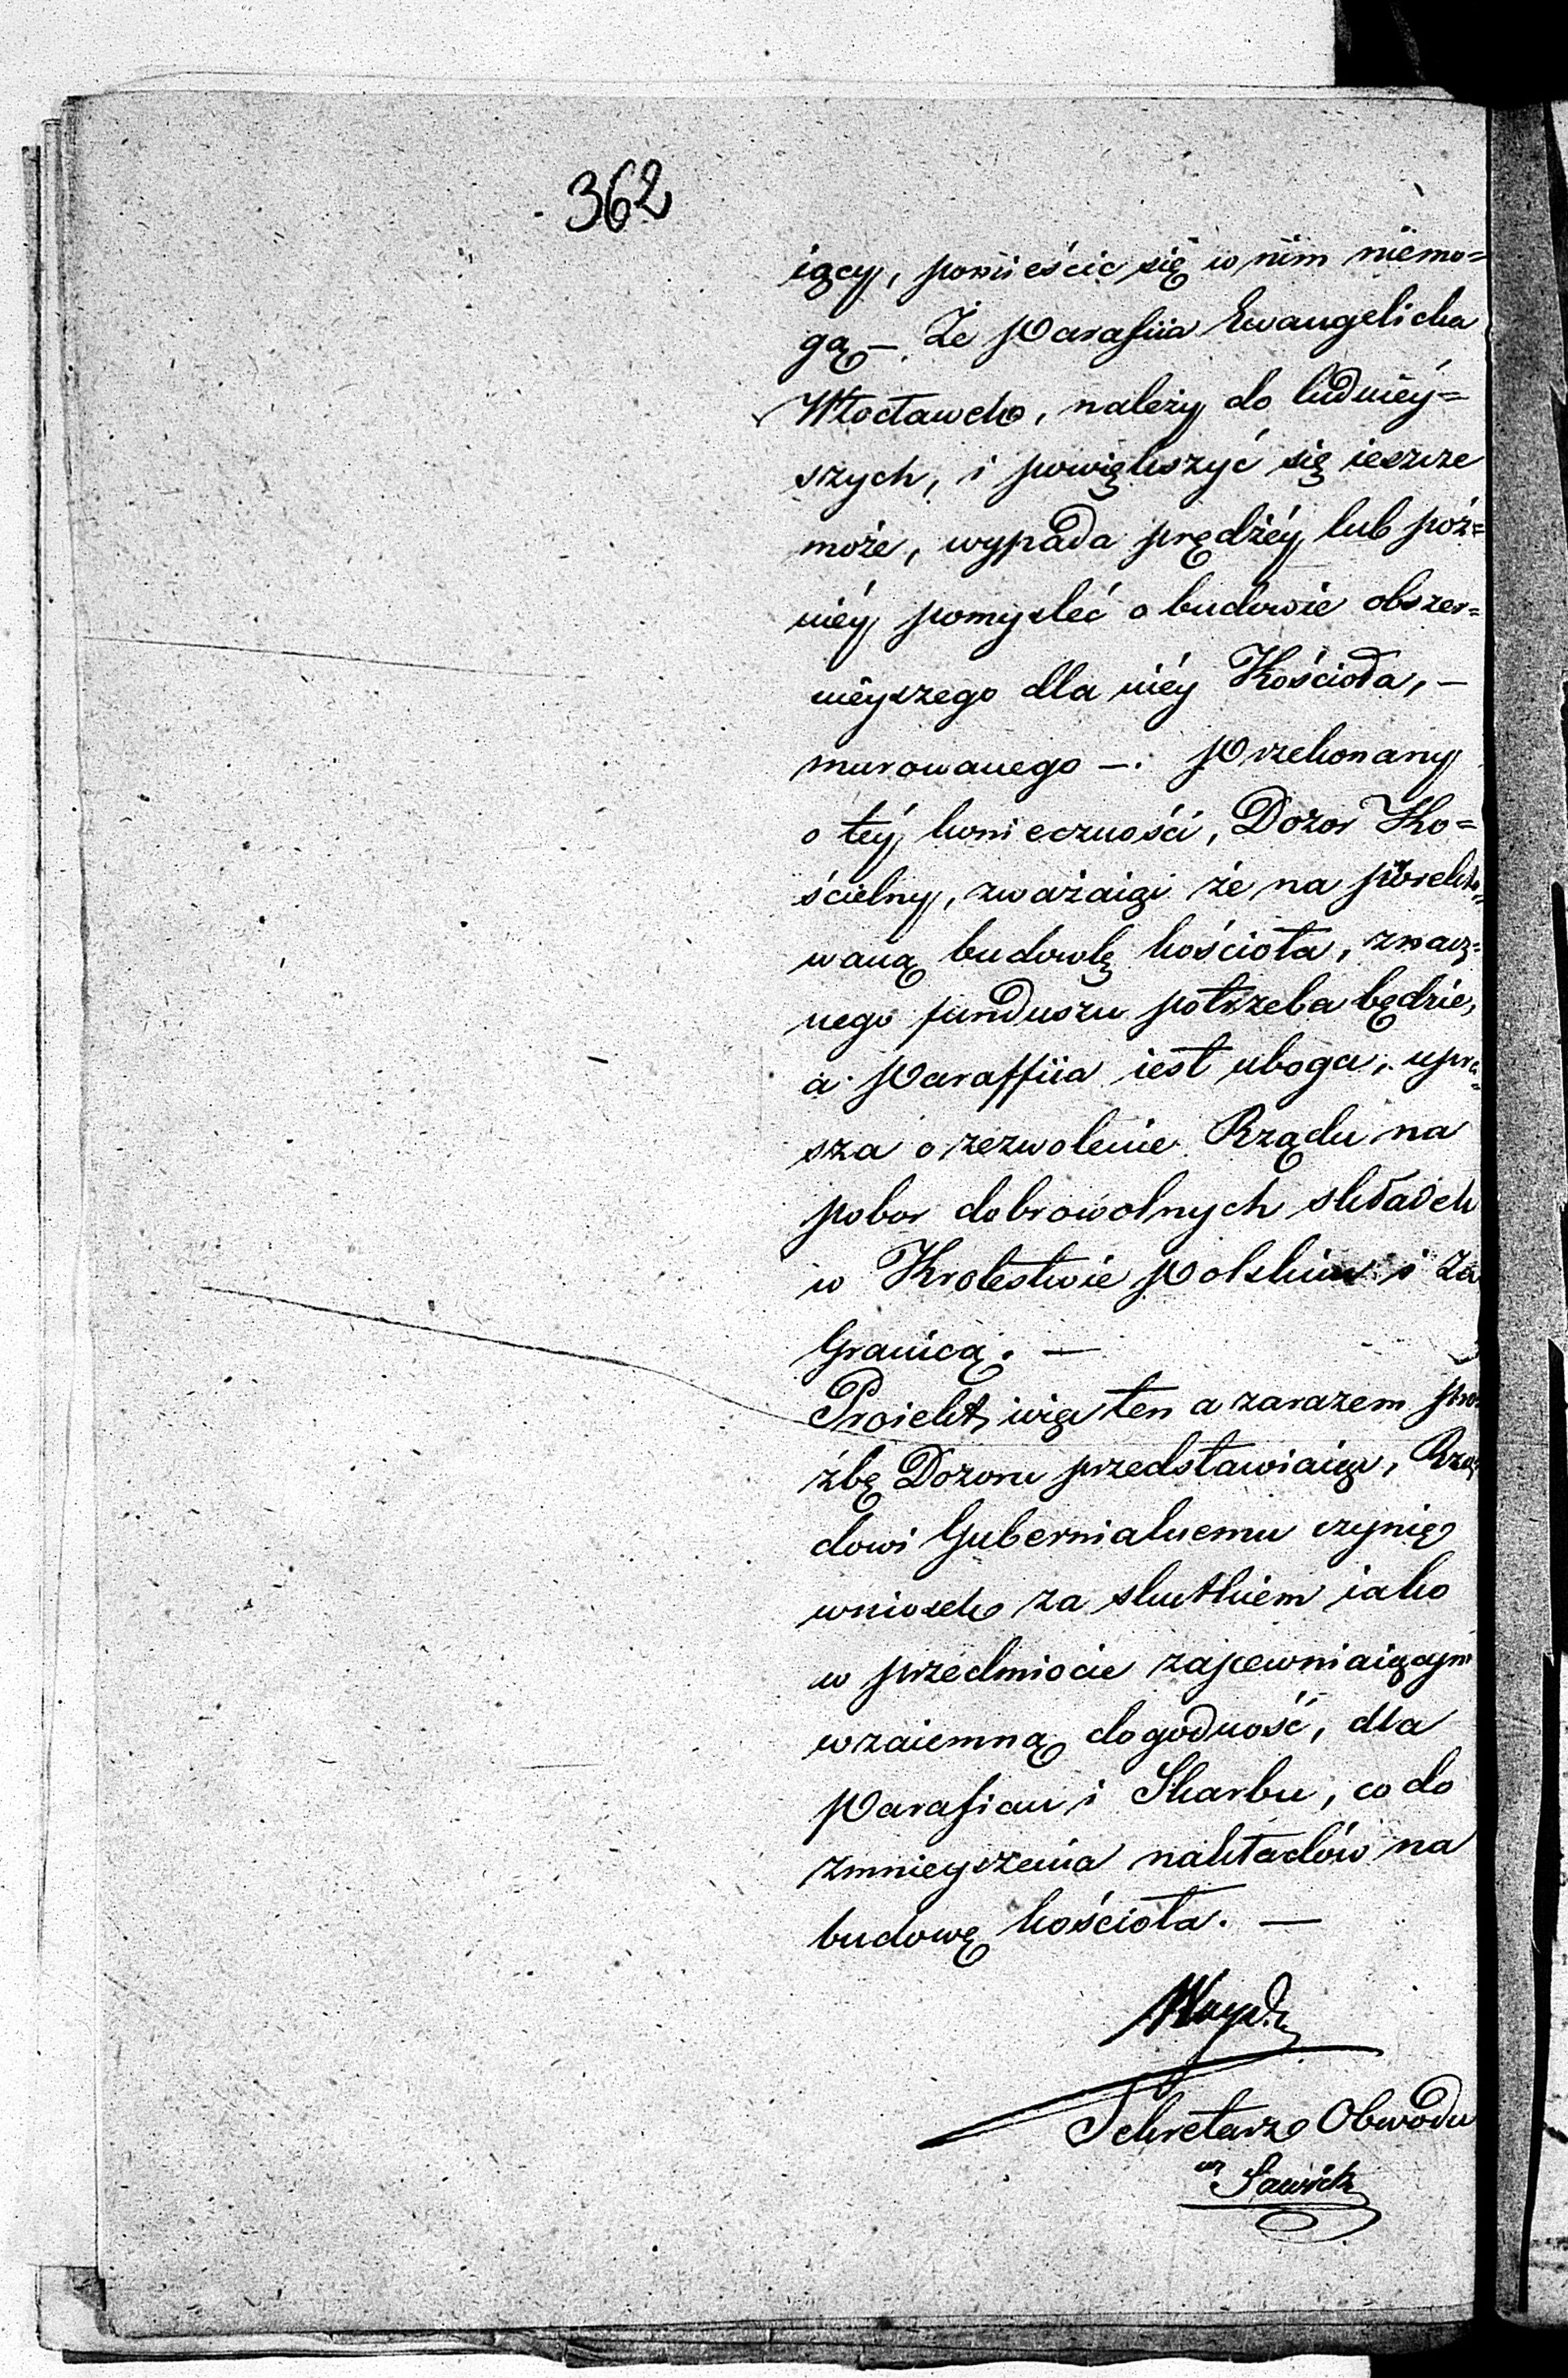 362
iący, pomieścić się w nim niemo=
gą — Że Parafiia Ewangelicka
Włocławek, należy do ludniéy=
szych, i powiększyć się ieszcze
może, wypada prędzéy lub póź=
niéy pomysleć o budowie obszer=
niéyszego dla niéy Kościoła, —
murowanego —. Przekonany
o téy konieczności, Dozor Ko=
ścielny, zważaiąc że na proiekto=
waną budowlę kościoła, znacz=
nego funduszu potrzeba będzie,
a Paraffiia iest uboga, upra=
sza o zezwolenie Rządu na
pobor dobrowolnych składek
w Krolestwie Polskim i za
Granicą. —
Proiekt więc ten a zarazem proś=
źbę Dozoru przedstawiaiąc, Rzą=
dowi Gubernialnemu czynię
wniosek za skutkiem iako
w przedmiocie zapewniaiącym
wzaiemną dogodność, dla
Parafian i Skarbu, co do
zmnieyszenia nakładów na
budowę kościoła. —
Sekretarz Obwodu
Sawicki